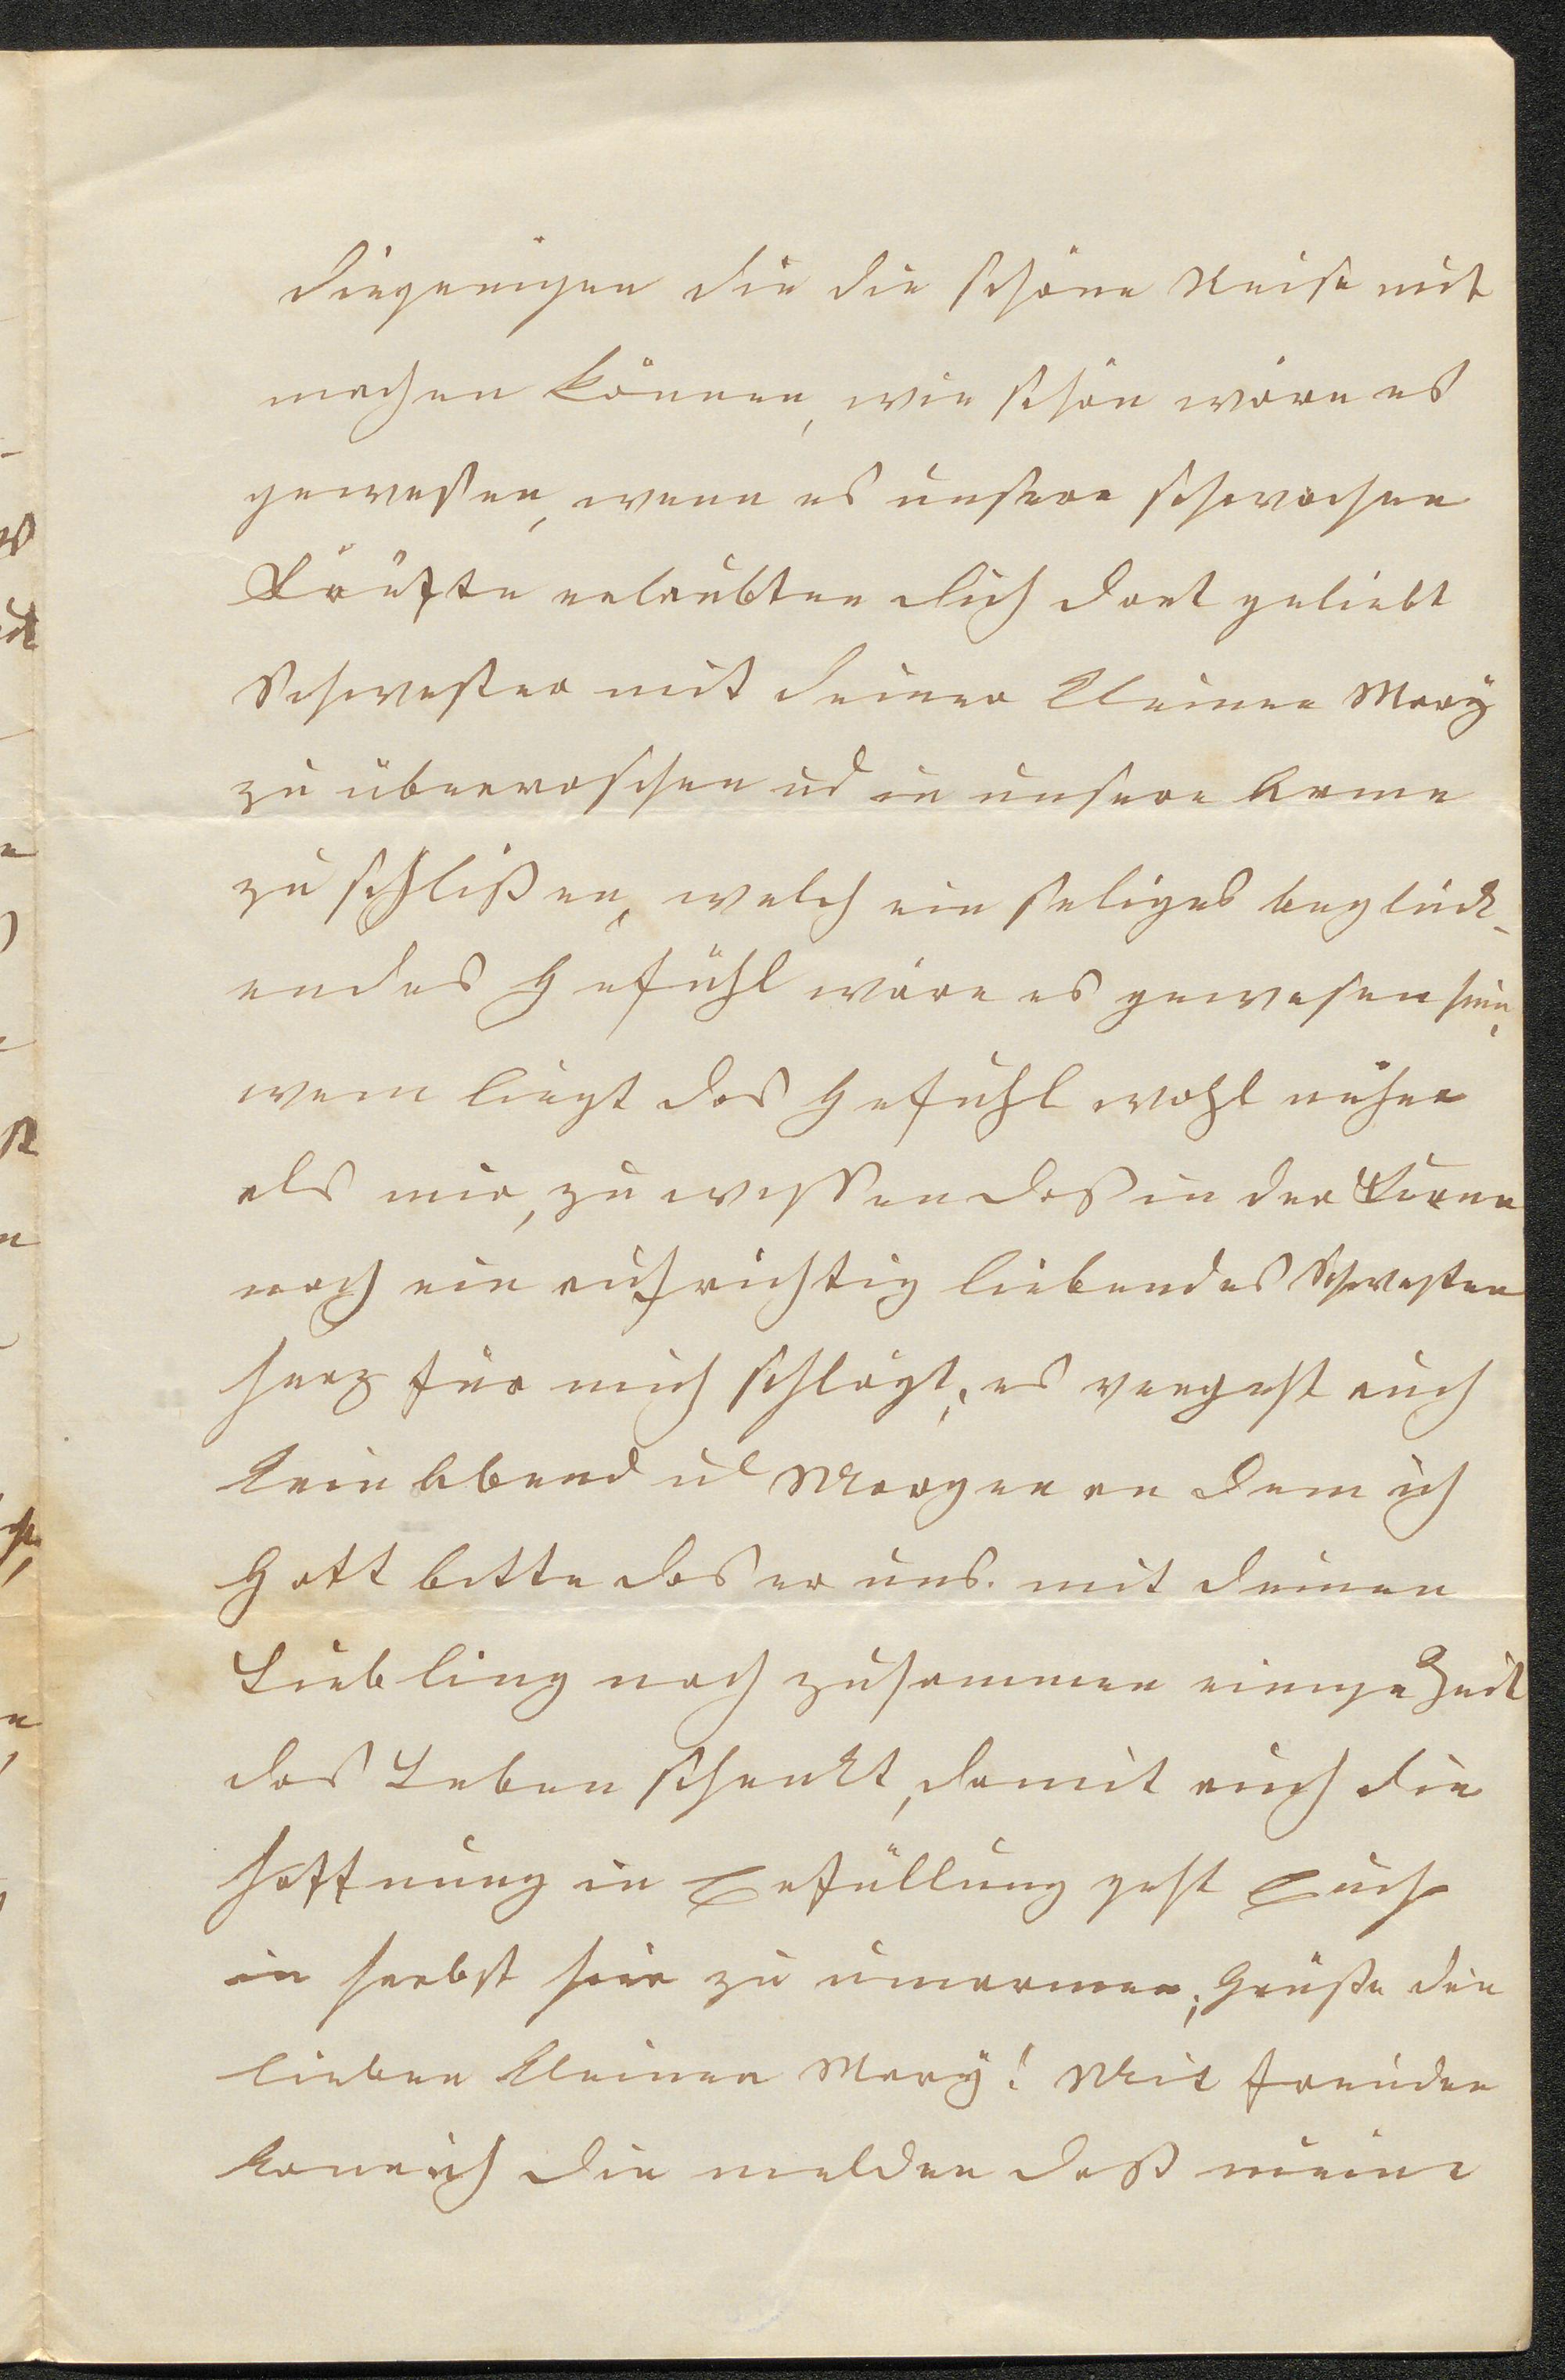 diegenigen die die schöne Reise mit
machen können, wie schön wäre es
gewesen, wenn es unsere schwachen
Kräfte erlaubten dich dort geliebt
Schwester mit deiner kleinen Mary
zu überraschen ud in unsere Arme
zu schlißen, welch ein seliges beglück-
endes Gefühl wäre es gewesen,
wem liegt das Gefühl wohl näher
als mir, zu wissen daß in der Ferne
noch ein aufrichtig liebendes Schwester
herz für mich schlägt; es vergeht auch
kein Abend ud Morgen an dem ich
Gott bitte das er uns mit deinen
Liebling noch zusammen einige Zeit
das Leben schenkt, damit auch die
Hoffnung in Erfüllung geht Euch
in Herbst hier zu umarmen; Grüße die
lieben kleinen Mary! Mit Freuden
kann ich dir melden daß meine